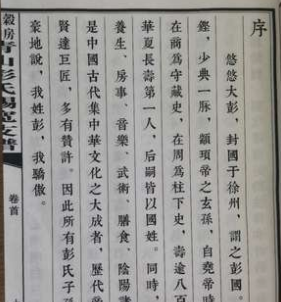 序
悠悠大彭，封國于徐州，謂之彭國。
鏗，少典一脉，顓頊帝之玄孫，自堯帝時
在商爲守藏史，在周爲柱下史，壽逾八百
華夏長壽第一人，后嗣皆以國姓。同時，
養生、房事、音樂、武術、膳食、陰陽諸
是中國古代集中華文化之大成者，歷代帝
賢達巨匠，多有贊許。因此所有彭氏子孫
豪地說，我姓彭，我驕傲。
房青山彭氏支譜
卷首